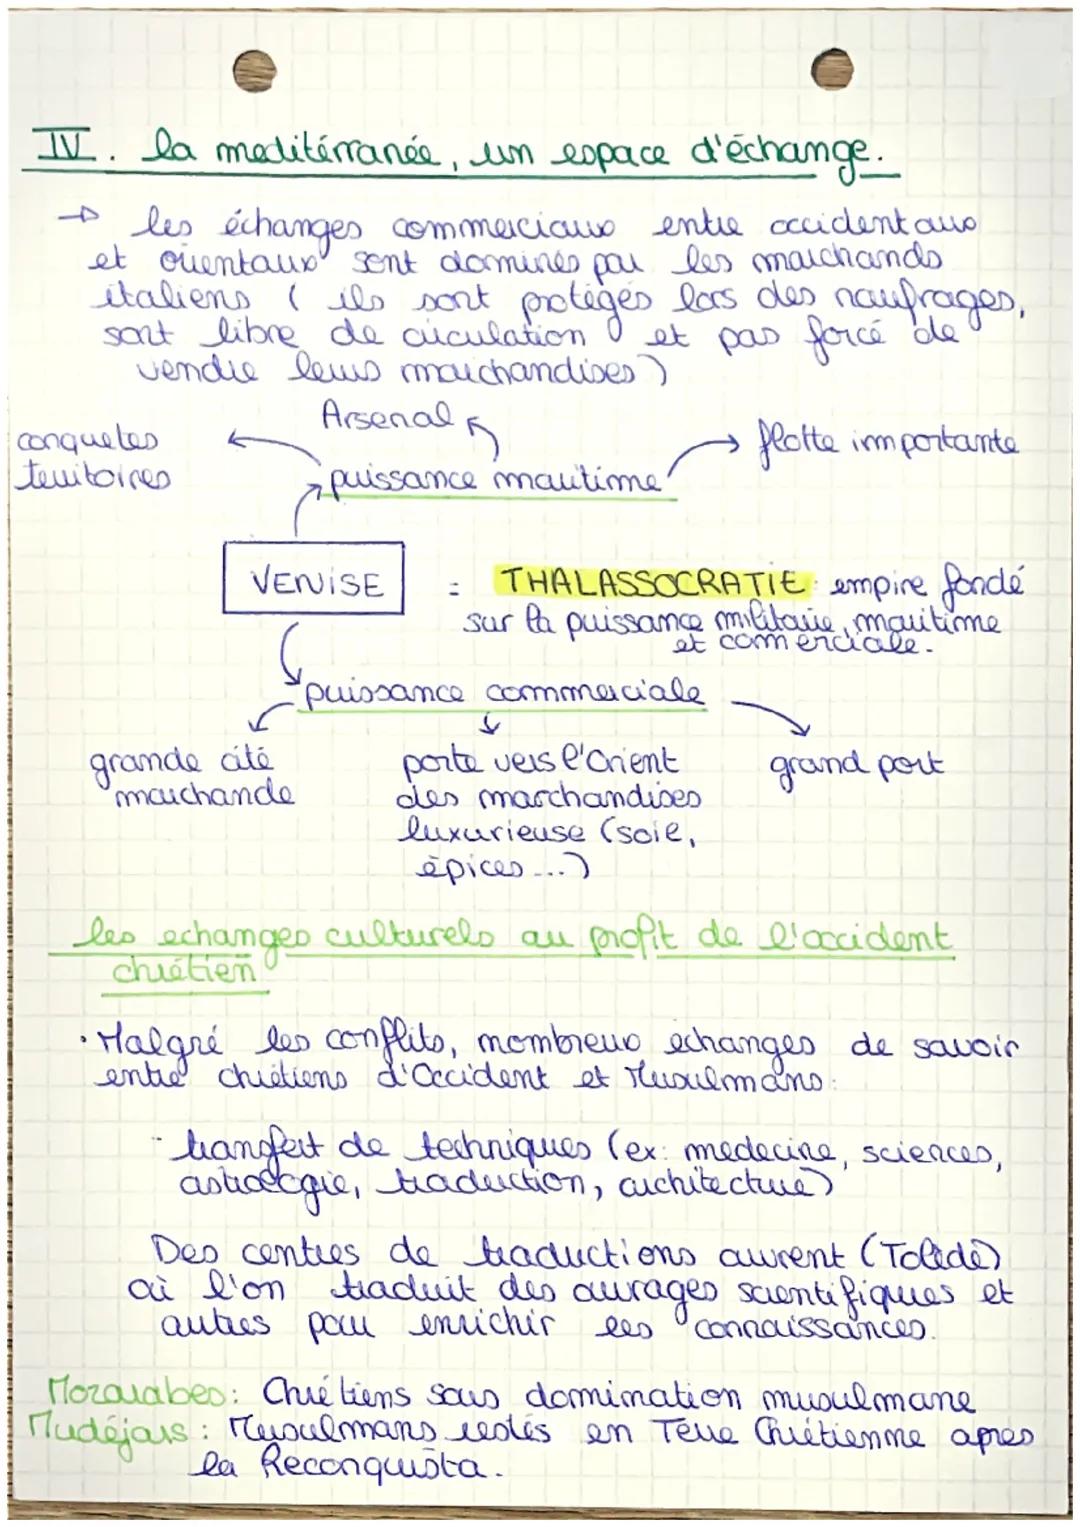 IV. la meditérranée, un espace d'échange.
→ les échanges commerciaux entre occidentaux
et orientaux sont dominés par les marchands
italiens ( ils sont protégés lors des naufrages,
sont libre de circulation et pas forcé de
vendre leurs marchandises )
Arsenal
conquetes
territoires
flotte importante
puissance maritime
VENISE = THALASSOCRATIE : empire fondé
sur la puissance militaire, maritime
et comerciale.
puissance commerciale
grande cité
marchande
porte vers l'Orient
des marschandises
luxurieuse (soie,
épices ...)
grand port
les echanges culturels au profit de l'occident
chrétien
• Malgré les conflits, nombreux echanges de savoir
entre chrétiens d'Occident et Musulmans :
- transfert de techniques (ex: medecine, sciences,
astrologie, traduction, architecture)
Des centres de traductions ouvrent (Tolède)
où l'on traduit des ouvrages scientifiques et
autres pour enrichir les connaissances.
Mozarabes : Chrétiens sous domination musulmane
Mudéjars : Musulmans restés en Terre Chrétienne apres
la Reconquista.